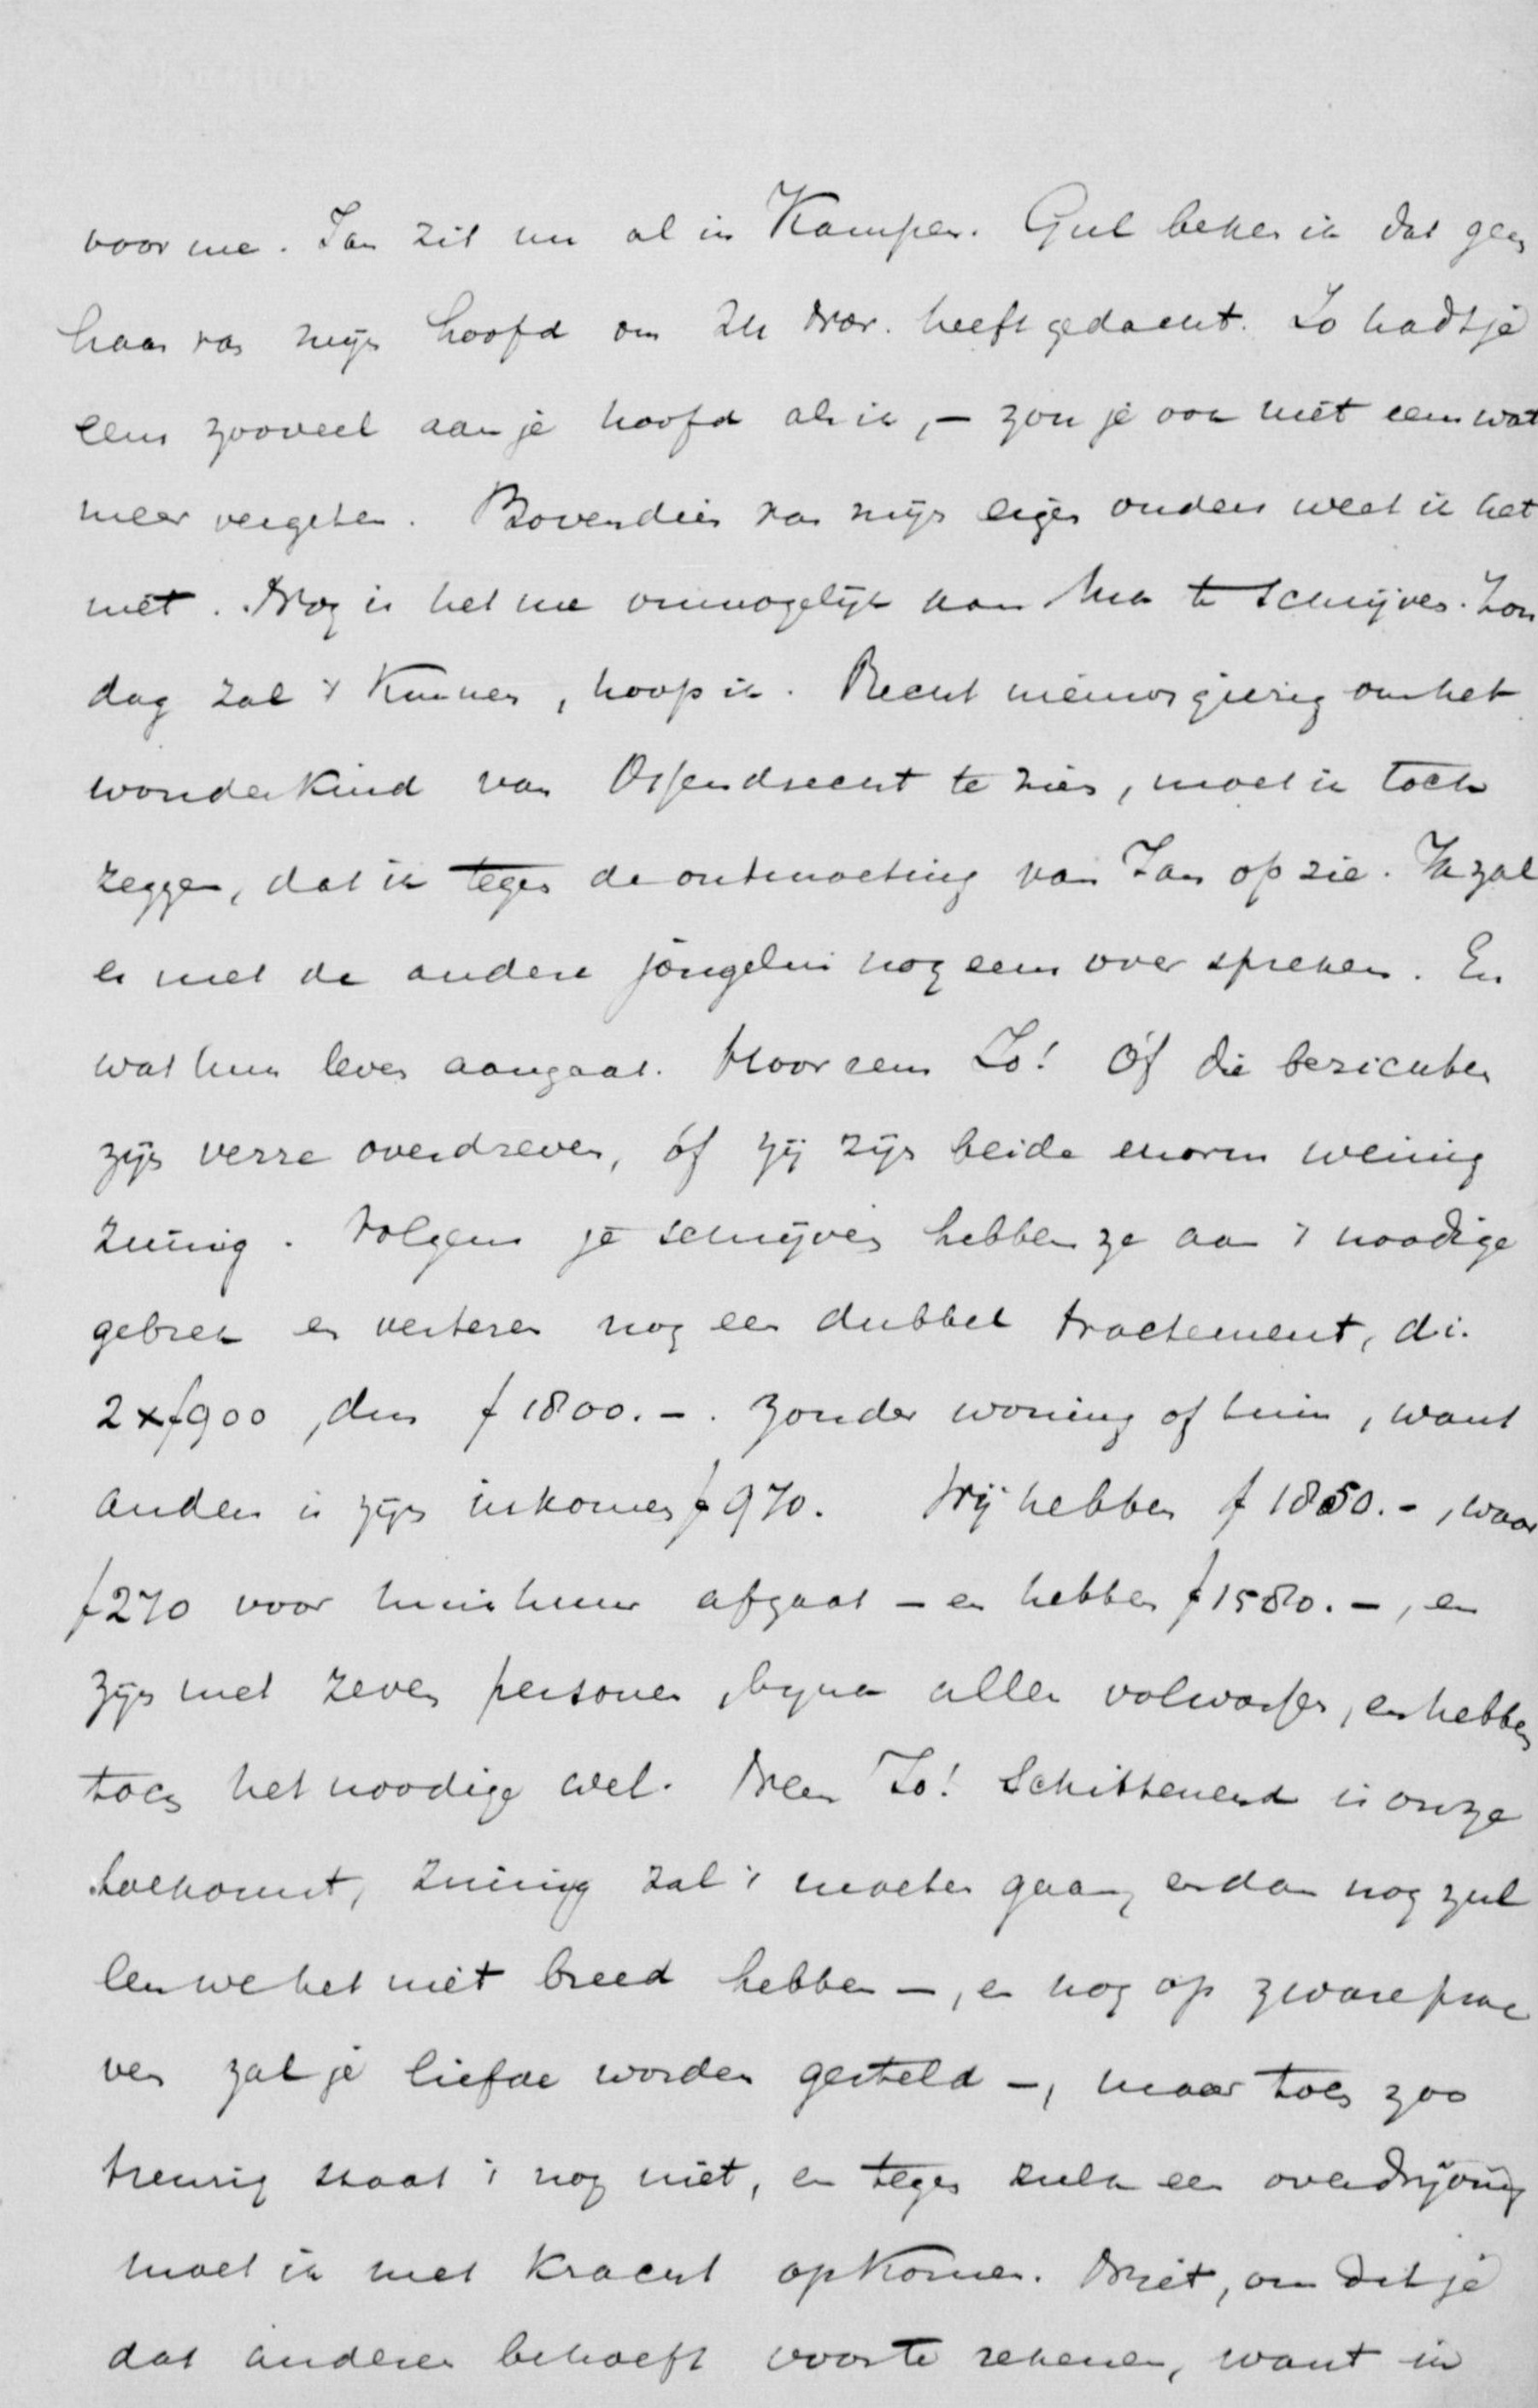 voor me. Jan zit nu al in Kampen. Gul beken ik dat geen
haar van mijn hoofd om 24 Nov. heeft gedacht. Jo hadt je
eens zooveel aan je hoofd als ik, – zou je ook niet eens wat
meer vergeten. Bovendien van mijn eigen ouders weet ik het
niet. Nog is het me onmogelijk aan Ma te schrijven. Zon
dag zal 't kunnen, hoop ik. Recht nieuwsgierig om het
wonderkind van Ossendrecht te zien, moet ik toch
zeggen, dat ik tegen de ontmoeting van Jan op zie. Ik zal
er met de andere jongelui nog eens over spreken. En
wat hun leven aangaat. Hoor eens Jo! Óf die berichten
zijn verre overdreven, óf zij zijn beide enorm weinig
zuinig. Volgens je schrijven hebben ze aan 't noodige
gebrek en verteren nog een dubbel tractement, d.i.
2 x f 900, dus f 1800.-. Zonder woning of tuin, want
anders is zijn inkomen f 970. Wij hebben f 1850.-, waar
f 270 voor huishuur afgaat – en hebben f 1580.-, en
zijn met zeven personen, bijna allen volwassen, en hebben
toch het noodige wel. Neen Jo! Schitterend is onze
toekomst, zuinig zal 't moeten gaan, en dan nog zul
len we het niet breed hebben –, en nog op zware proe
ven zal je liefde worden gesteld –, maar toch zoo
treurig staat 't nog niet, en tegen zulk een overdrijving
moet ik met kracht opkomen. Niet, om dit je
dat anderen behoeft voor te rekenen, want in